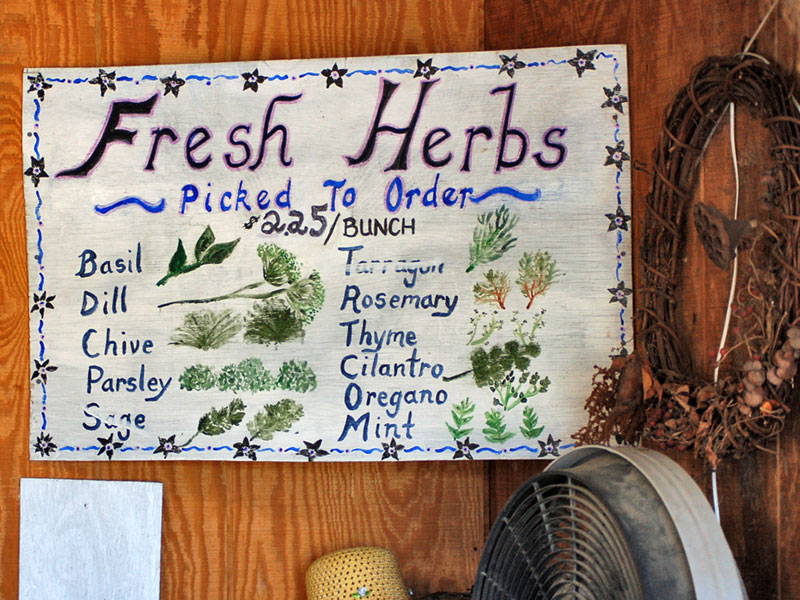 Fresh Herbs
Picked To Order
$2.25/BUNCH
Basil
Dill
Chive
Parsley
Sage
Tarragon
Rosemary
Thyme
Cilantro
Oregano
Mint